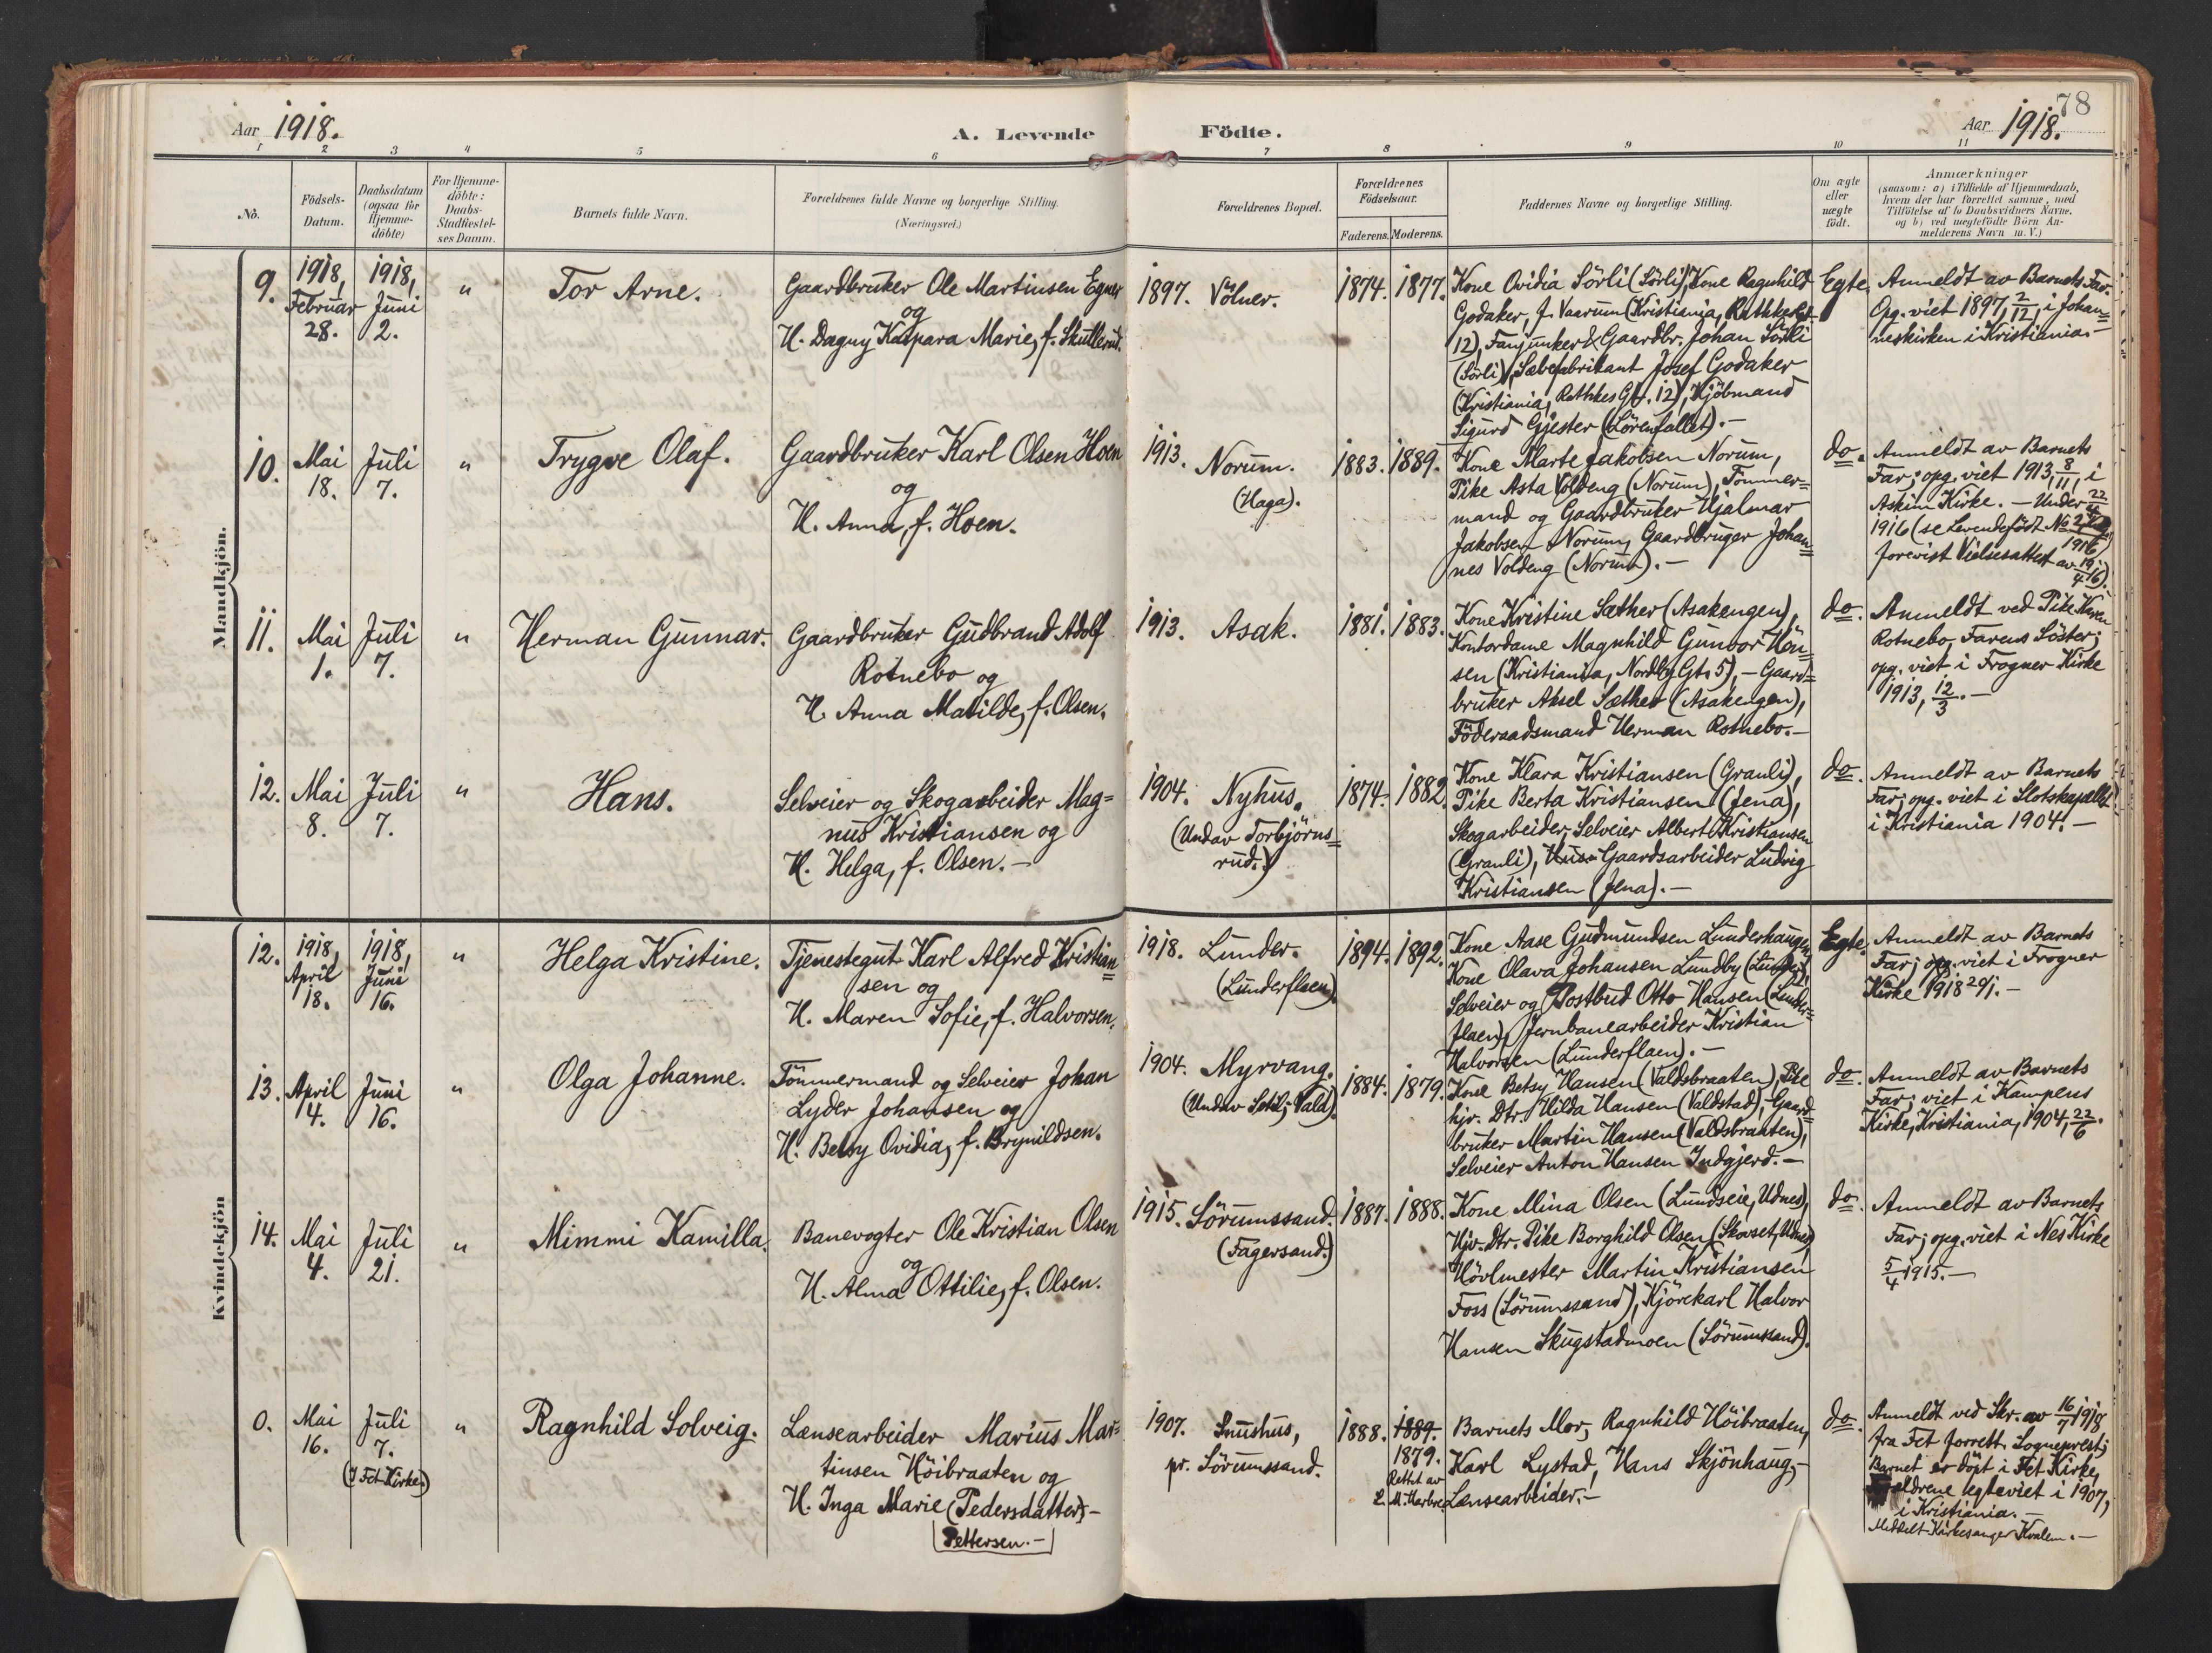 78
Aar 1918.
A. Levende
Födte.
Aar 1918.
1 2 3 4 5 6 7 8 9 10 11
No.
Födsels-
Datum.
Daabsdatum
(ogsaa for
Hjemme-
döbte)
For Hjemme-
döbte:
Daabs-
Stadfæstel-
ses Datum.
Barnets fulde Navn.
Forældrenes fulde Navne og borgerlige Stilling.
(Næringsvei.)
Forældrenes Bopæl.
Forældrenes
Födselsaar.
Faderens. Moderens.
Faddernes Navne og borgerlige Stilling.
Om ægte
eller
uægte
födt.
Anmærkninger
(saasom: a) i Tilfælde af Hjemmedaab,
hvem der har forrettet samme, med
Tilföielse af to Daabsvidners Navne,
og b) ved uægtefödte Börn An-
melderens Navn m. V.)
Mandkjön.
9.
1918,
Februar
28.
1918,
Juni
2.
"
Tor Arne.
Gaardbruker Ole Martinsen Egner
og
H. Dagny Kaspara Marie, f. Skullerud.
1897. Völner.
1874. 1877.
Kone Ovidia Sörli (Sörli), Kone Ragnhild
Godaker, f. Vaarum (Kristiania, Rathkesgt
12), Fanjunker & Gaardbr. Johan Sörli
(Sörli), Sæbefabrikant Josef Godaker
(Kristiania, Rathkes Gt. 12), Kjöbmand
Sigurd Gjester (Lörenfallet). –
Egte.
Anmeldt av Barnets Far.
Opg. viet 1897, 2/12, i Johan=
neskirken i Kristiania. –
10.
Mai
18.
Juli
7.
"
Trygve Olaf.
Gaardbruker Karl Olsen Hoen
og
H. Anna, f. Hoen.
1913. Norum.
(Haga).
1883. 1889.
Kone Marte Jakobsen Norum,
Pike Asta Voldeng (Norum), Tömmer=
mand og Gaardbruker Hjalmar
Jakobsen Norum, Gaardbruger Johan=
nes Voldeng (Norum). –
do.
Anmeldt av Barnets
Far; opg. viet 1913, 8/11, i
Askim Kirke. – Under 22/4
1916 (se Levendefödt No 2
1916)
forevist Vielsesattest av 19/4 16).
11.
Mai
1.
Juli
7.
"
Herman Gunnar.
Gaardbruker Gudbrand Adolf
Rotnebo og
H. Anna Matilde, f. Olsen.
1913. Asak.
1881. 1883.
Kone Kristine Sæther (Asakengen),
Kontordame Magnhild Gunvor Hön=
sen (Kristiania, Nordby Gt. 5), – Gaard=
bruker Aksel Sæther (Asakengen),
Föderaadsmand Herman Rotnebo. –
do.
Anmeldt ved Pike Karen
Rotnebo, Farens Söster;
opg. viet i Frogner Kirke
1913, 12/3. –
12.
Mai
8.
Juli
7.
"
Hans.
Selveier og Skogarbeider Mag=
nus Kristiansen og
H. Helga, f. Olsen. –
1904. Nyhus.
(Undav Torbjörns=
rud.)
1874. 1882.
Kone Klara Kristiansen (Granli),
Pike Berta Kristiansen (Jena),
Skogarbeider, Selveier Albert Kristiansen
(Granli), Gaardsarbeider Ludvig
Kristiansen (Jena). –
do.
Anmeldt av Barnets
Far; opg. viet i Slotskapellet
i Kristiania 1904. –
Kvindekjön
12.
1918,
April
18.
1918,
Juni
16.
"
Helga Kristine.
Tjenestegut Karl Alfred Kristian=
sen og
H. Maren Sofie, f. Halvorsen.
1918. Lunder.
(Lunderflaen)
1894. 1892.
Kone Aase Gudmundsen Lunderhaugen,
Kone Olava Johansen Lundby
Selveier og Postbud Otto Hansen (Lunder=
flaen), Jernbanearbeider Kristian
Halvorsen (Lunderflaen). –
Egte.
Anmeldt av Barnets
Far; opg. viet i Frogner
Kirke 1918 20/1. –
13.
April
4.
Juni
16.
"
Olga Johanne.
Tömmermand og Selveier Johan
Lyder Johansen og
H. Betsy Ovidia, f. Brynildsen.
1904. Myrvang.
(Undav Vald).
1884. 1879.
Kone Betsy Hansen (Valdsbraaten), Pike
hjv. Dtr. Hilda Hansen (Valdstad), Gaard=
bruker Martin Hansen (Valdsbraaten),
Selveier Anton Hansen Indgjerd. –
do.
Anmeldt av Barnets
Far; viet i Kampens
Kirke, Kristiania, 1904, 22/6.
14.
Mai
4.
Juli
21.
"
Mimmi Kamilla.
Banevogter Ole Kristian Olsen
og
H. Alma Ottilie, f. Olsen.
1915. Sörumssand.
(Fagersand.)
1887. 1888.
Kone Mina Olsen (Lundseie, Udnes),
Hjv. Dtr. Pike Borghild Olsen (Skovset, Udnes)
Hövlmester Martin Kristiansen
Foss (Sörumssand), Kjörekarl Halvor
Hansen Skugstadmoen (Sörumssand).
do.
Anmeldt av Barnets
Far; opg. viet i Nes Kirke
5/4 1915. –
0.
Mai
16.
Juli
7.
(I Fet Kirke)
"
Ragnhild Solveig.
Lænsearbeider Marius Mar=
tinsen Höibraaten og
H. Inga Marie (Pedersdatter) –
Pettersen. –
1907. Snushus,
pr. Sörumssand.
1888. 1889.
1879.
Rettet av
Barnets Mor, Ragnhild Höibraaten,
Karl Lystad, Hans Skjönhaug, –
Lænsearbeider. –
do.
Anmeldt ved Skr. av 16/7 1918
fra Fet forrett. Sogneprest;
Barnet er döpt i Fet Kirke,
Forældrene egteviet i 1907,
i Kristiania. –
Meddelt Kirkesanger Kvalem. –